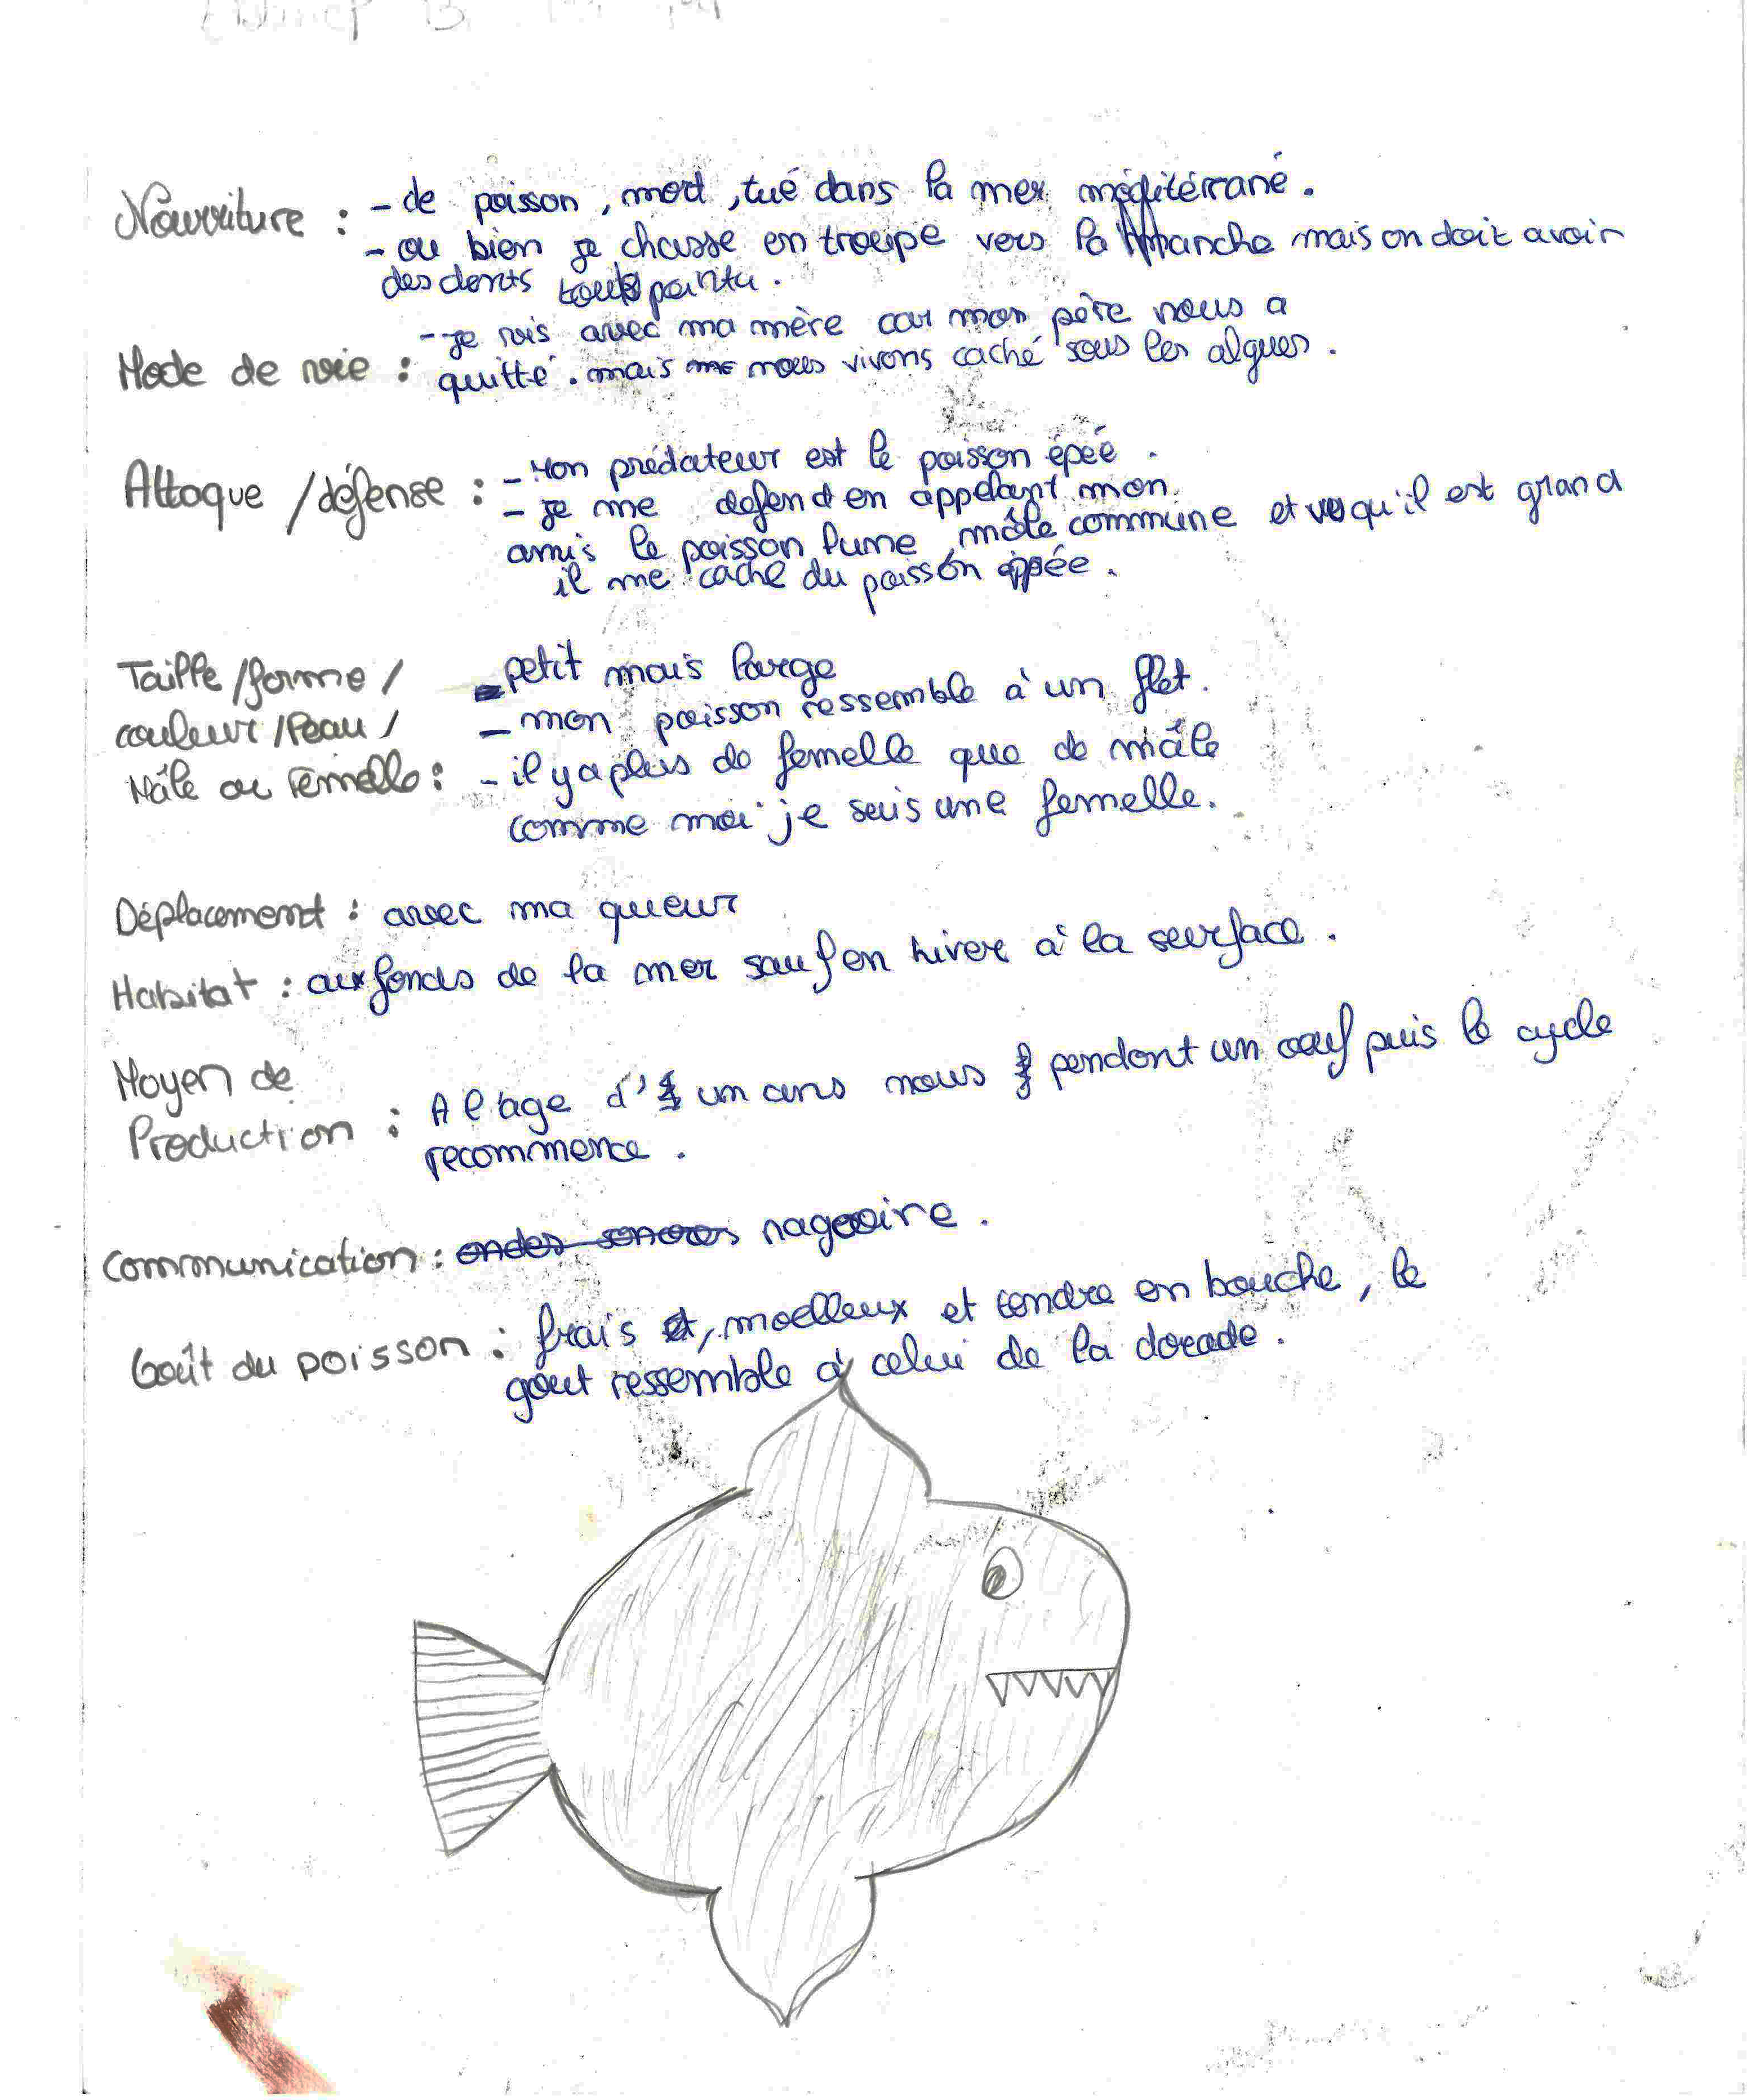 Nourriture : - de poisson, mort, tué dans la mer méditérrané.
- ou bien je chasse en troupe vers la manche mais on doit avoir
des dents tous pointu.
Mode de vie : - je vis avec ma mère car mon père nous a
quitté. mais nous vivons caché sous les algues.
Attaque /défense : - Mon prédateur est le poisson épéé.
- je me defend en appelant mon
amis le poisson lune, môle commune et vu qu'il est grand
il me cache du poisson épée.
Taille /forme / - petit mais large
couleur /Peau / - mon poisson ressemble à un flet.
Mâle ou Femelle : - il y a plus de femelle que de mâle
comme moi je suis une femelle.
Déplacement : avec ma queur
Habitat : aux fonds de la mer sauf en hiver à la surface.
Moyen de
Production : A l'age d' un ans nous pendont un oeuf puis le cycle
recommence.
Communication : ondes sonores nageoire.
Goût du poisson : frais, moelleux et tendre en bouche, le
gout ressemble à celui de la dorade.